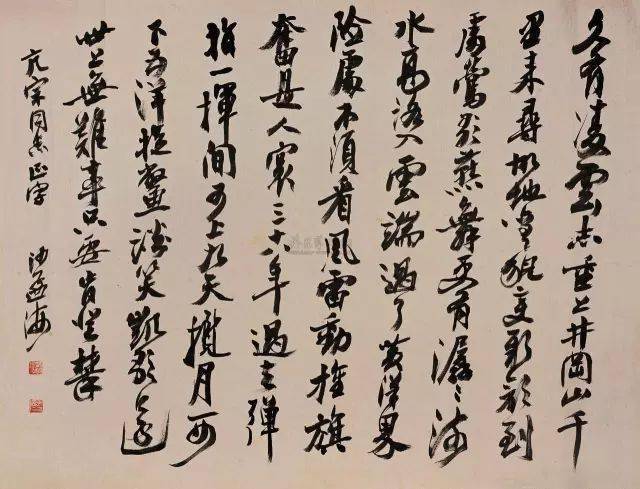 久有凌雲志重上井岡山千
里来尋故地旧貌变新颜到
處鶯歌燕舞更有潺〻流
水高路入雲端過了黄洋界
险處不須看風雷動旌旗
奮是人寰三十八年過去彈
指一揮間可上九天攬月可
下五洋捉鱉談笑凱歌還
世上無難事只要肯登攀
亢宗同志正字 沙孟海